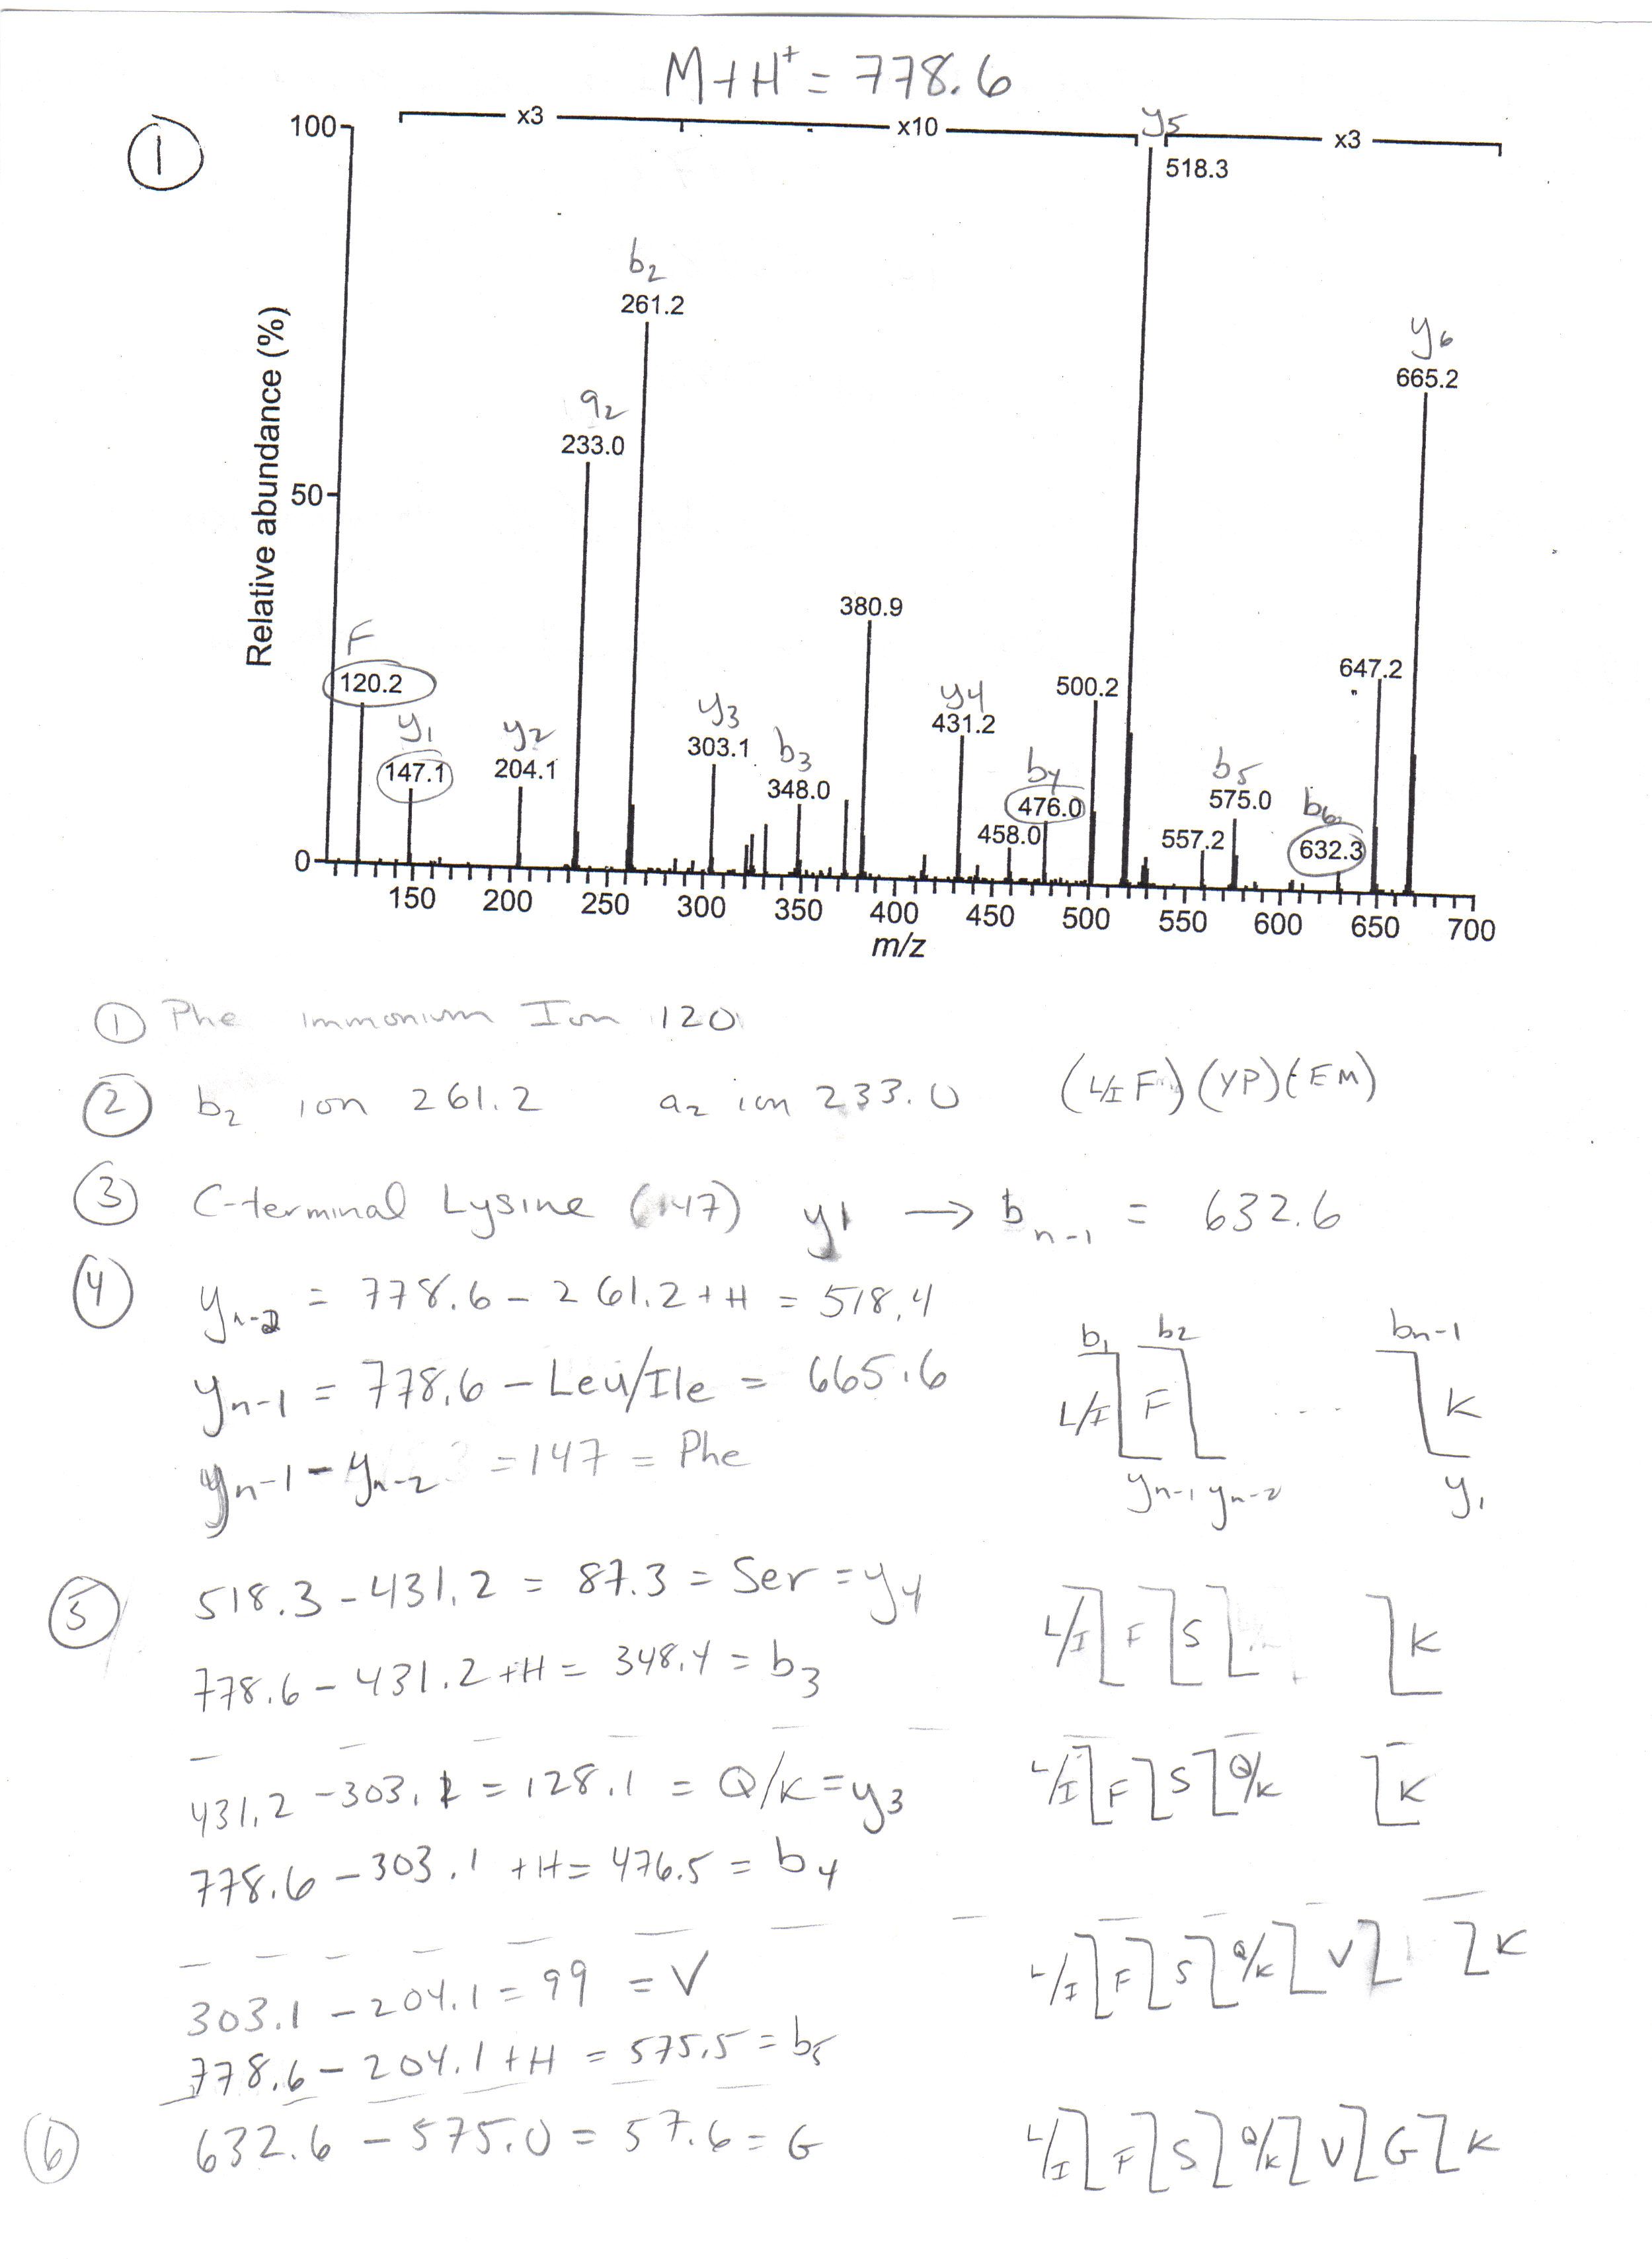 M+H⁺ = 778.6
①
x3 x10 x3
100
50
0
Relative abundance (%)
y5
518.3
b2
261.2
a2
233.0
y6
665.2
F
120.2
y1
147.1
y2
204.1
y3
303.1
b3
348.0
380.9
y4
431.2
458.0
b4
476.0
500.2
557.2
b5
575.0
b6
632.3
647.2
150 200 250 300 350 400 450 500 550 600 650 700
m/z
① Phe immonium Ion 120
② b2 ion 261.2 a2 ion 233.0 (L/I F) (YP) (EM)
③ C-terminal Lysine (147) y1 → bn-1 = 632.6
④ yn-2 = 778.6 - 261.2 + H = 518.4
yn-1 = 778.6 - Leu/Ile = 665.6
yn-1 - yn-2 = 147 = Phe
b1 b2 bn-1
L/I F ... K
yn-1 yn-2 y1
⑤ 518.3 - 431.2 = 87.3 = Ser = y4
L/I F S K
778.6 - 431.2 + H = 348.4 = b3
431.2 - 303.1 = 128.1 = Q/K = y3
L/I F S Q/K K
778.6 - 303.1 + H = 476.5 = b4
303.1 - 204.1 = 99 = V
L/I F S Q/K V K
778.6 - 204.1 + H = 575.5 = b5
⑥ 632.6 - 575.0 = 57.6 = G
L/I F S Q/K V G K